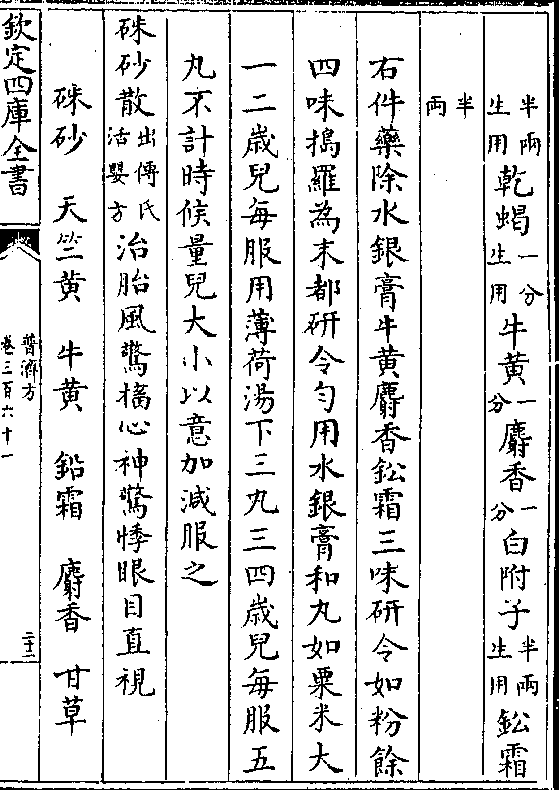 半兩生用乾蝎一分生用牛黄一分麝香一分白附子半兩生用鈆霜
半兩
右件藥除水銀膏牛黄麝香鈆霜三味研令如粉餘
四味搗羅為末都研令勻用水銀膏和丸如粟米大
一二歳兒每服用薄荷湯下三丸三四歳兒每服五
丸不計時候量兒大小以意加減服之
硃砂散出傅氏活嬰方治胎風驚搐心神驚悸眼目直視
硃砂 天竺黄 牛黄 鉛霜 麝香 甘草
欽定四庫全書
普濟方
卷三百六十一
二十二